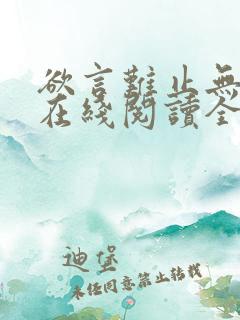 欲言難止無
在綫閱讀全
迪堡
未任同意禁止轉載